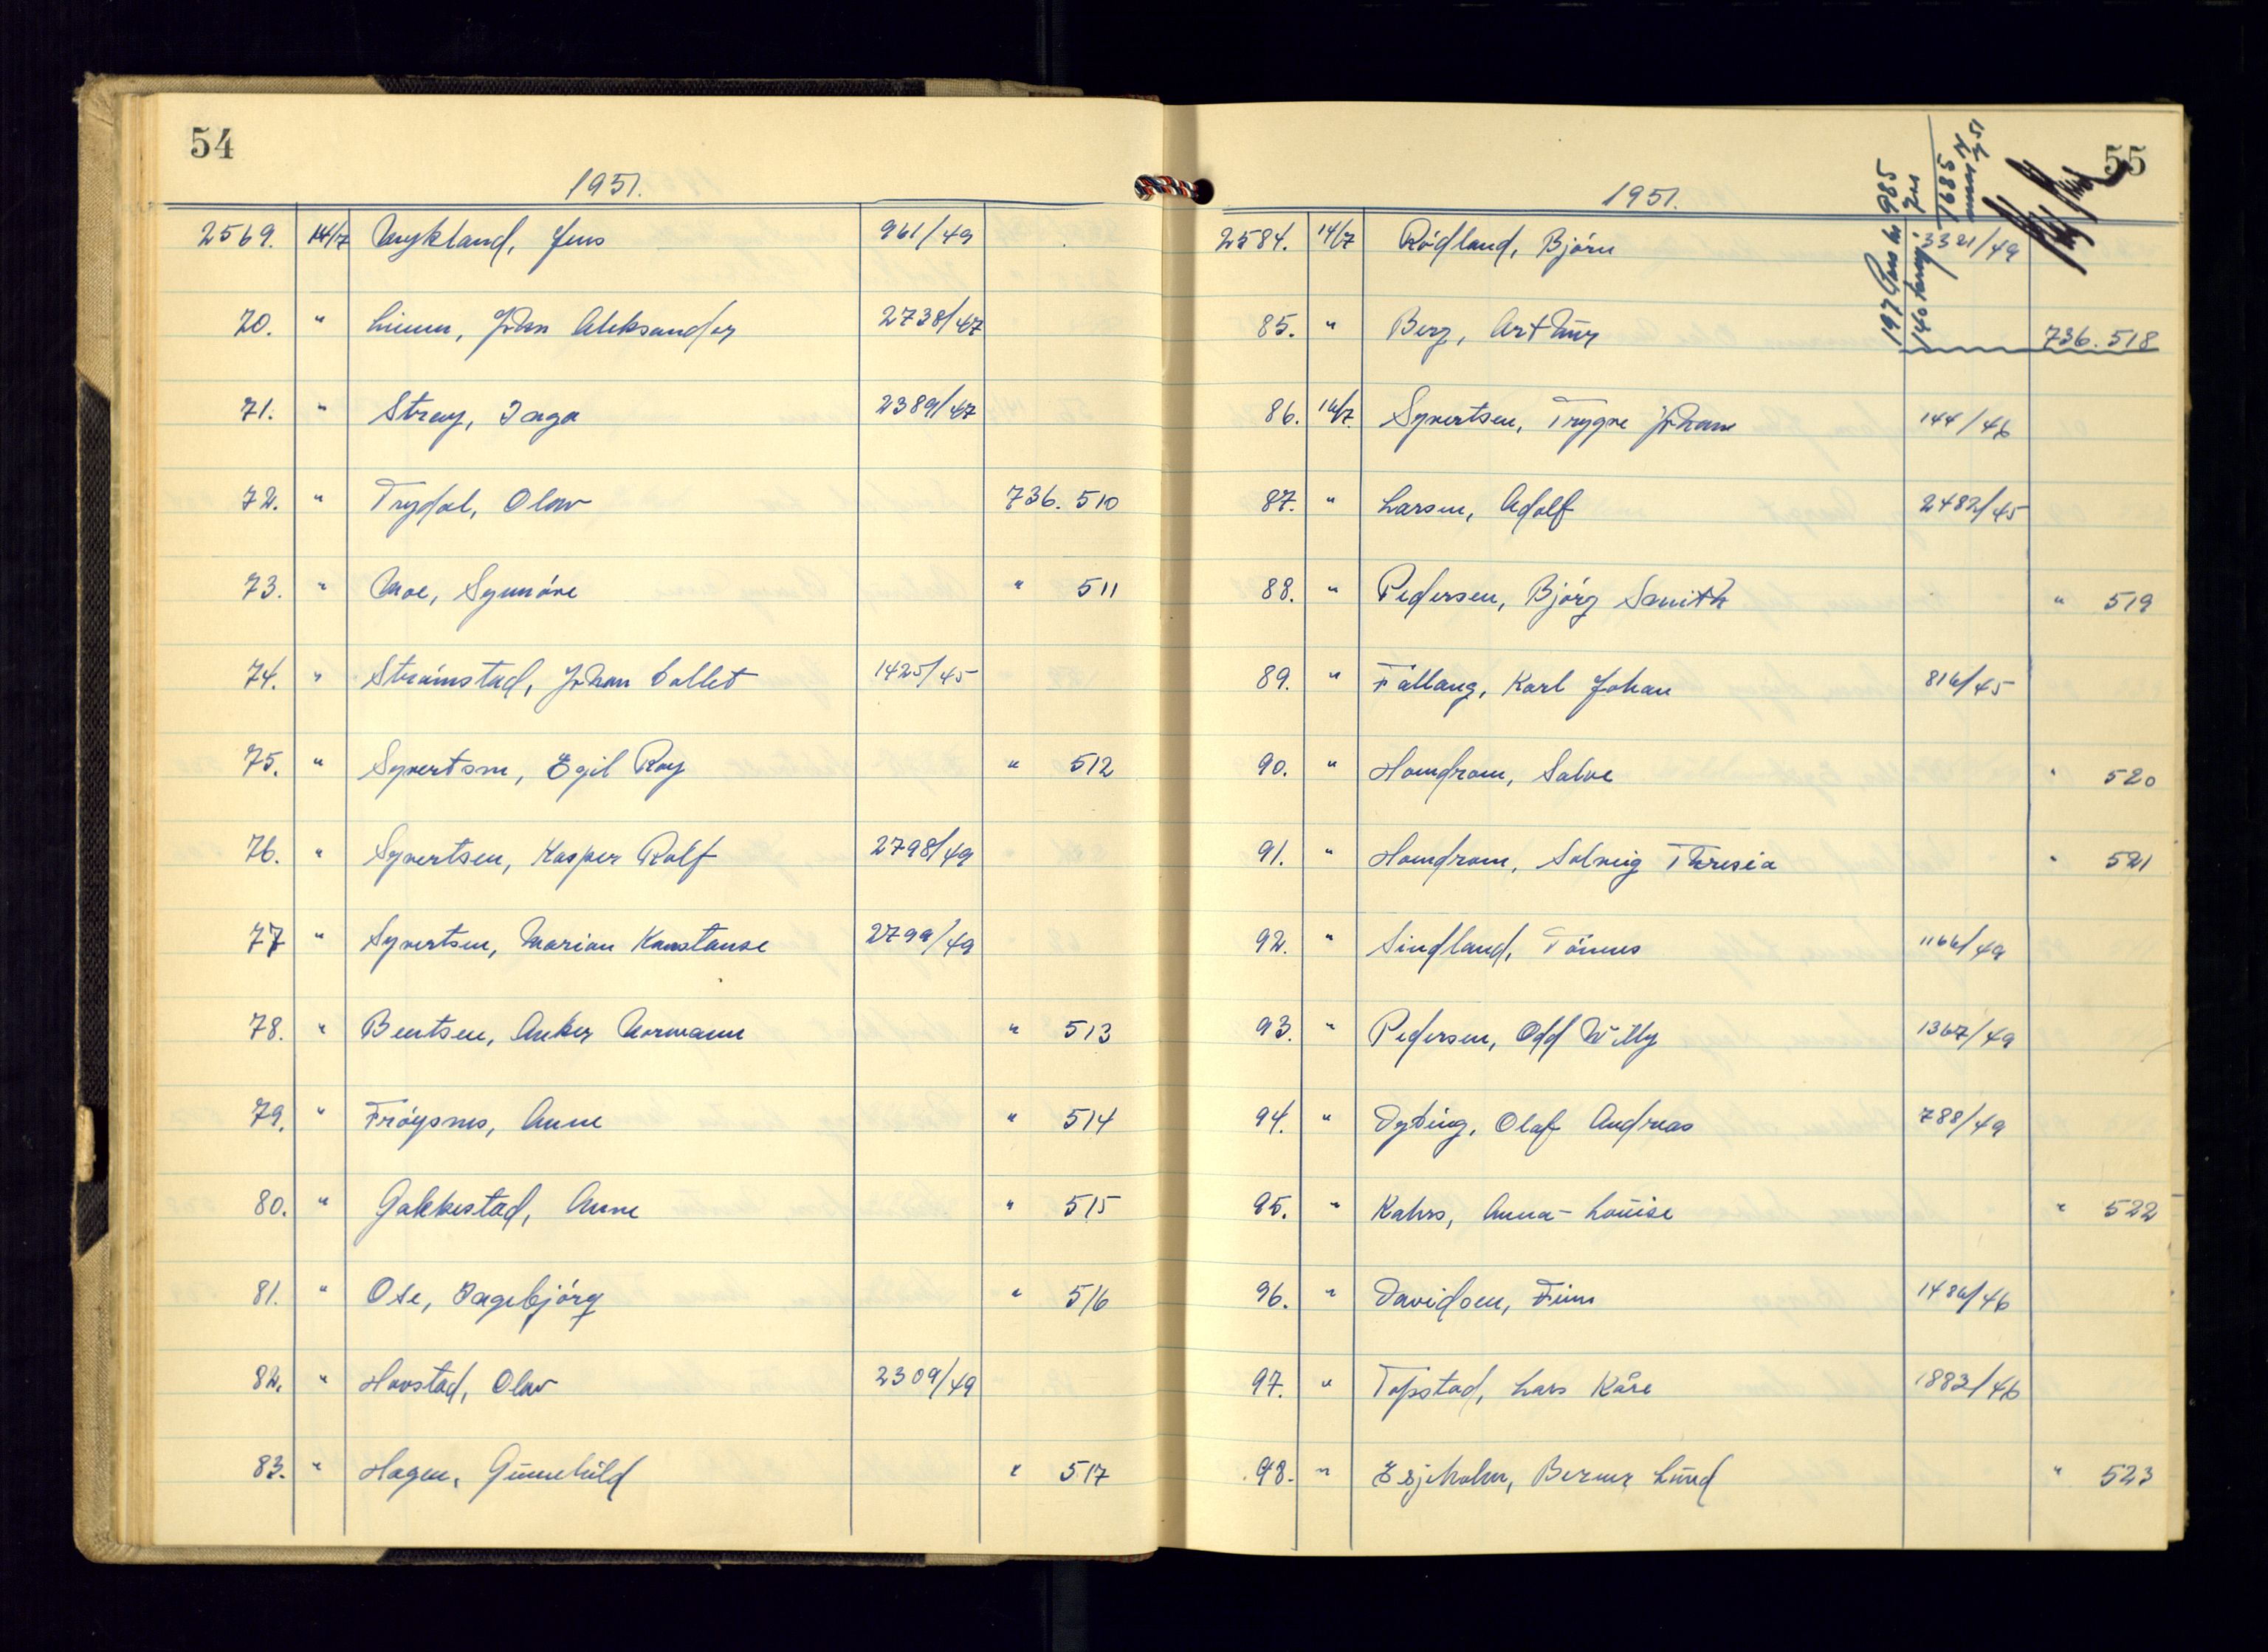 54
1951.
2569. 14/7 Mykland, Jens 961/49
70. " Linnu, Johan Aleksander 2738/47
71. " Stray, Inga 2389/47
72. " Trydal, Olav 736. 510
73. " Moe, Synnöve " 511
74. " Strömstad, Johan Collet 1425/45
75. " Syvertsen, Egil Roy " 512
76. " Syvertsen, Kasper Rolf 2798/49
77 " Syvertsen, Marion Konstanse 2799/49
78. " Bentsen, Anker Normann " 513
79. " Fröysnes, Anne " 514
80. " Gakkestad, Anne " 515
81. " Ose, Ingebjörg " 516
82. " Hovstad, Olav 2309/49
83. " Hagen, Gunnhild " 517
55
1951.
985
1685
2584. 14/7 Rödland, Björn 3321/49
85. " Berg, Arthur 736. 518
86. 16/7 Syvertsen, Trygve Johan 144/46
87. " Larsen, Adolf 2482/45
88. " Pedersen, Björg Smith " 519
89. " Fållang, Karl Johan 816/45
90. " Homdrom, Salve " 520
91. " Homdrom, Solveig Theresia " 521
92. " Sindland, Tönnes 1166/49
93. " Pedersen, Odd Willy 1367/49
94. " Dybing, Olaf Andreas 788/49
95. " Kahrs, Anna-Louise " 522
96. " Davidsen, Finn 1486/46
97. " Topstad, Lars Kåre 1883/46
98. " Esjeholm, Berner Lund " 523